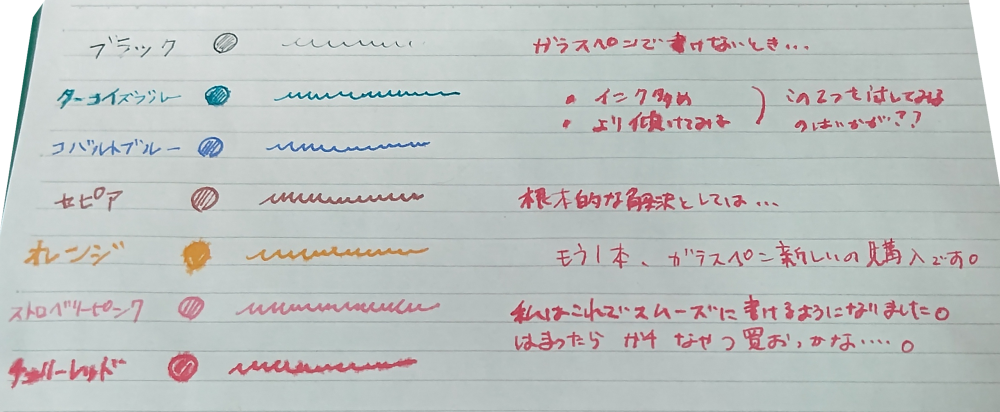 ブラック
ターコイズブルー
コバルトブルー
セピア
オレンジ
ストロベリーピンク
チェリーレッド
ガラスペンで書けないとき...
・インク多め
・より傾けてみる
この2つを試してみる
のはいかが??
根本的な解決としては...
もう1本、ガラスペン新しいの購入です。
私はこれでスムーズに書けるようになりました。
はまったら ガチ なやつ買おっかな....。